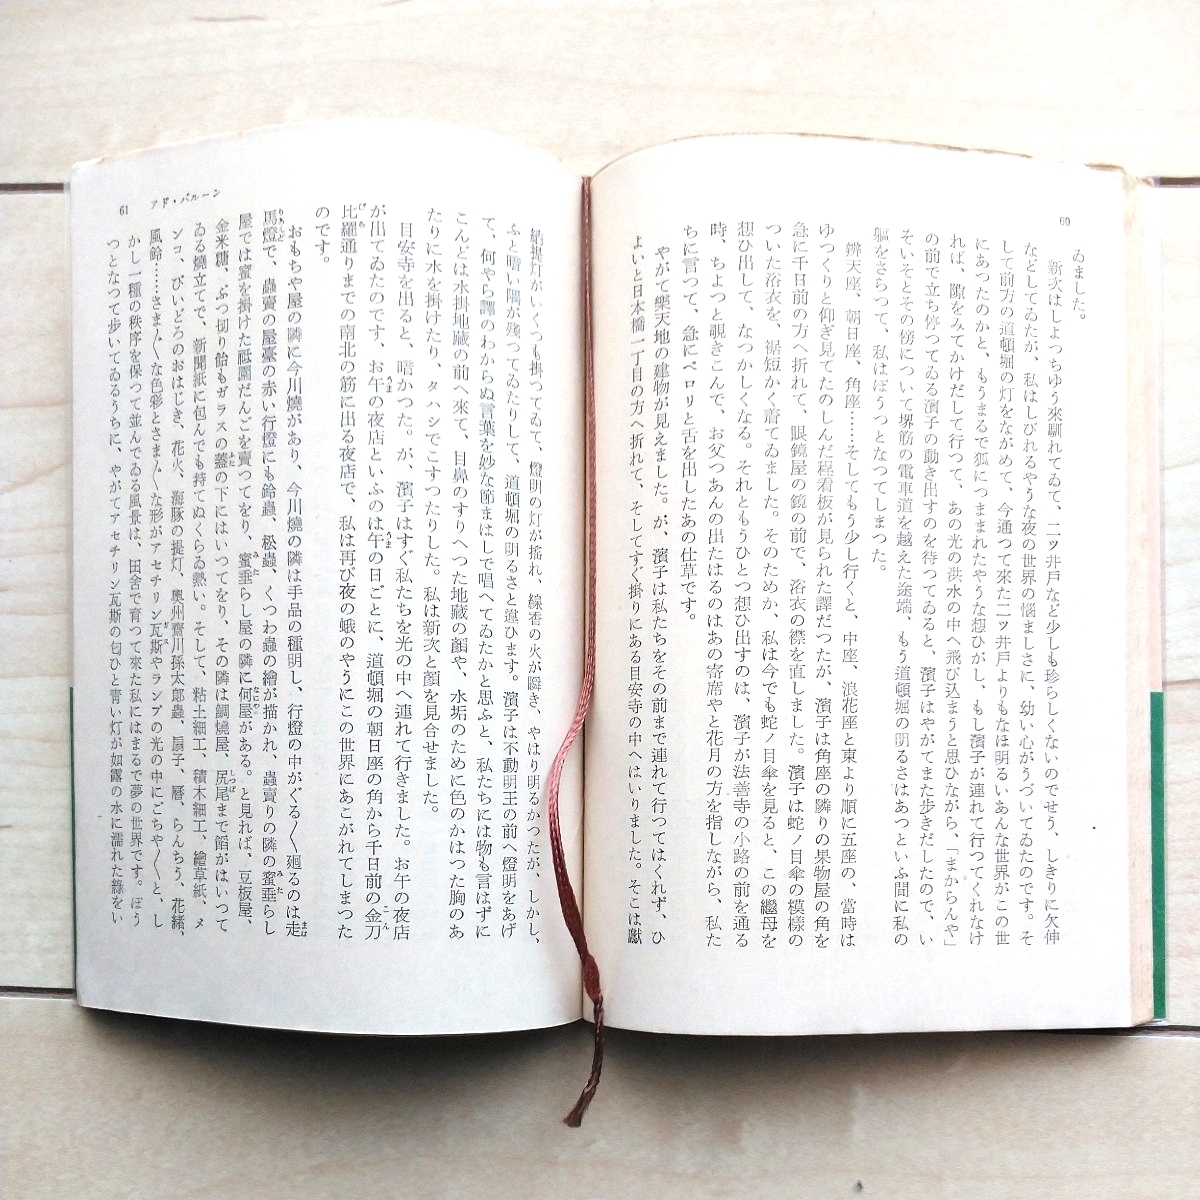 60
ゐました。
新次はしよつちゆう來馴れてゐて、二ッ井戸など少しも珍らしくないのでせう、しきりに欠伸
などしてゐたが、私はしびれるやうな夜の世界の悩ましさに、幼い心がうづいてゐたのです。そ
して前方の道頓堀の灯をながめて、今通つて來た二ッ井戸よりもなほ明るいあんな世界がこの世
にあつたのかと、もうまるで狐につままれたやうな想ひがし、もし濱子が連れて行つてくれなけ
れば、隙をみてかけだして行つて、あの光の洪水の中へ飛び込まうと思ひながら、「まからんや」
の前で立ち停つてゐる濱子の動き出すのを待つてゐると、濱子はやがてまた歩きだしたので、い
そいそとその傍について堺筋の電車道を越えた途端、もう道頓堀の明るさはあつといふ間に私の
軀をさらつて、私はぼうつとなつてしまつた。
辨天座、朝日座、角座……そしてもう少し行くと、中座、浪花座と東より順に五座の、當時は
ゆつくりと仰ぎ見てたのしんだ程看板が見られた譯だつたが、濱子は角座の隣りの果物屋の角を
急に千日前の方へ折れて、眼鏡屋の鏡の前で、浴衣の襟を直しました。濱子は蛇ノ目傘の模様の
ついた浴衣を、裾短かく着てゐました。そのためか、私は今でも蛇ノ目傘を見ると、この繼母を
想ひ出して、なつかしくなる。それともうひとつ想ひ出すのは、濱子が法善寺の小路の前を通る
時、ちよつと覗きこんで、お父つあんの出たはるのはあの寄席やと花月の方を指しながら、私た
ちに言つて、急にペロリと舌を出したあの仕草です。
やがて樂天地の建物が見えました。が、濱子は私たちをその前まで連れて行つてはくれず、ひ
よいと日本橋一丁目の方へ折れて、そしてすぐ掛りにある目安寺の中へはいりました。そこは獻
納提灯がいくつも掛つてゐて、燈明の灯が揺れ、線香の火が瞬き、やはり明るかつたが、しかし、
ふと暗い隅が殘つてゐたりして、道頓堀の明るさと違ひます。濱子は不動明王の前へ燈明をあげ
て、何やら譯のわからぬ言葉を妙な節まはしで唱へてゐたかと思ふと、私たちには物も言はずに
こんどは水掛地藏の前へ來て、目鼻のすりへつた地藏の顔や、水垢のために色のかはつた胸のあ
たりに水を掛けたり、タハシでこすつたりした。私は新次と顔を見合せました。
目安寺を出ると、暗かつた。が、濱子はすぐ私たちを光の中へ連れて行きました。お午の夜店
が出てゐたのです、お午の夜店といふのは午の日ごとに、道頓堀の朝日座の角から千日前の金刀
比羅通りまでの南北の筋に出る夜店で、私は再び夜の蛾のやうにこの世界にあこがれてしまつた
のです。
おもちや屋の隣に今川燒があり、今川燒の隣は手品の種明し、行燈の中がぐる〱廻るのは走
馬燈で、蟲賣の屋臺の赤い行燈にも鈴蟲、松蟲、くつわ蟲の繪が描かれ、蟲賣りの隣の蜜垂らし
屋では蜜を掛けた祗園だんごを賣つてをり、蜜垂らし屋の隣に何屋がある。と見れば、豆板屋、
金米糖、ぶつ切り飴もガラスの蓋の下にはいつてをり、その隣は鯛燒屋、尻尾まで餡がはいつて
ゐる燒立てで、新聞紙に包んでも持てぬくらゐ熱い。そして、粘土細工、積木細工、繪草紙、メ
ンコ、びいどろのおはじき、花火、海豚の提灯、奥州齋川孫太郎蟲、扇子、曆、らんちう、花緒、
風鈴……さま〲な色彩とさま〲な形がアセチリン瓦斯やランプの光の中にごちや〱と、し
かし一種の秩序を保つて並んでゐる風景は、田舍で育つて來た私にはまるで夢の世界です。ぼう
つとなつて歩いてゐるうちに、やがてアセチリン瓦斯の匂ひと青い灯が如露の水に濡れた綠をい
61 アド・バルーン